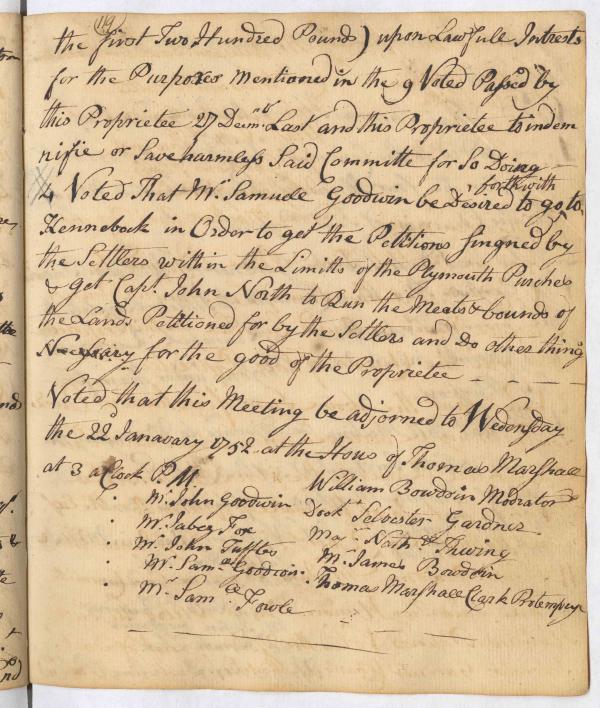 19
the first Two Hundred Pounds) upon Lawfull Intrests
for the Purposes mentioned in the 9 Voted Passed by
this Proprietee 27 Decmbr Last and this Proprietee to indem
nifie or Save harmless Said Committe for So Doing
4 Voted That Mr. Samuel Goodwin be Desired to go forthwith to
Kennebeck in Order to get the Petitions singned by
the Settlers within the Limitts of the Plymouth Purches
& Get Capt. John North to Run the Meats & bounds of
the Lands Petitioned for by the Settlers and do other thing
Nessary for the good of the Proprietee
Voted that this Meeting be adjorned to Wedensday
the 22d Janavary 1752 at the Hous of Thomas Marshall
at 3 a Clock P.M.
William Bowdoin Modrator
Mr. John Goodwin Doctr Selvester Gardner
Mr. Jabez Fox Majr. Nath Thwing
Mr John Tufftes Mr. James Bowdoin
Mr. Saml Goodwin Thomas Marshall Clark Protempuer
Mr Saml. Fowle